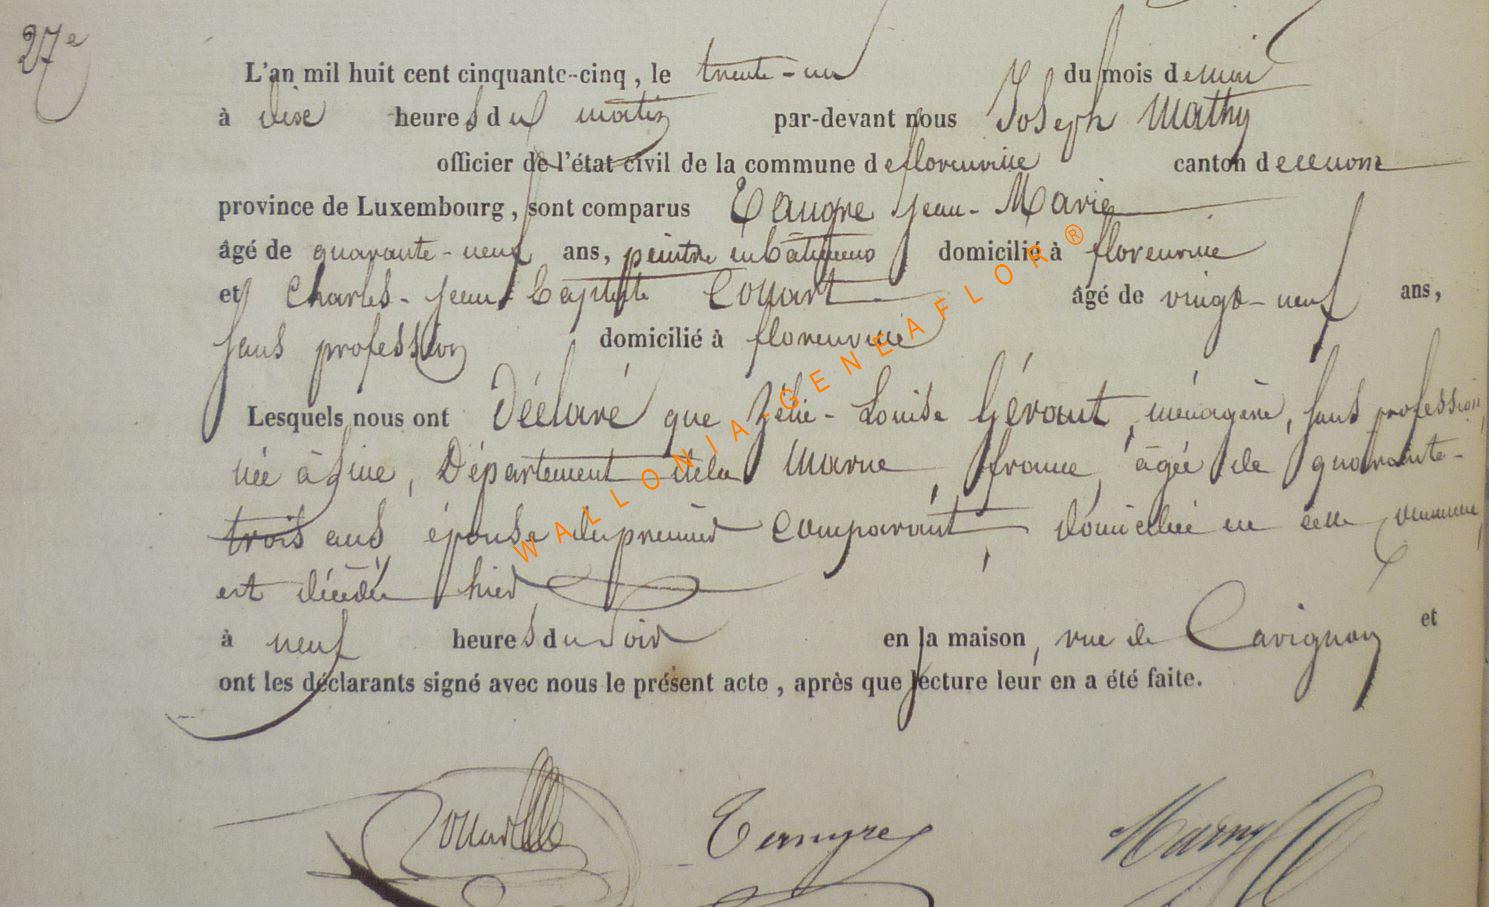 27e
L'an mil huit cent cinquante-cinq, le trente-un du mois de mai
à dix heures du matin par-devant nous Joseph Mathy
officier de l'état civil de la commune de florenville canton de
province de Luxembourg, sont comparus Jean-Marie
âgé de quarante-neuf ans, peintre en bâtimens domicilié à florenville
et Charles-Jean-Baptiste âgé de vingt-neuf ans,
sans profession domicilié à florenville
Lesquels nous ont Déclaré que Zélie-Louise Gérant, ménagère, sans profession,
née à, Département dela Marne, france, âgée de quarante-
trois ans, épouse du premier Comparant, domiciliée en cette commune,
est décédée hier
à neuf heures du soir en la maison, rue de et
ont les déclarants signé avec nous le présent acte, après que lecture leur en a été faite.
WALLONIA-GENEAFLOR®